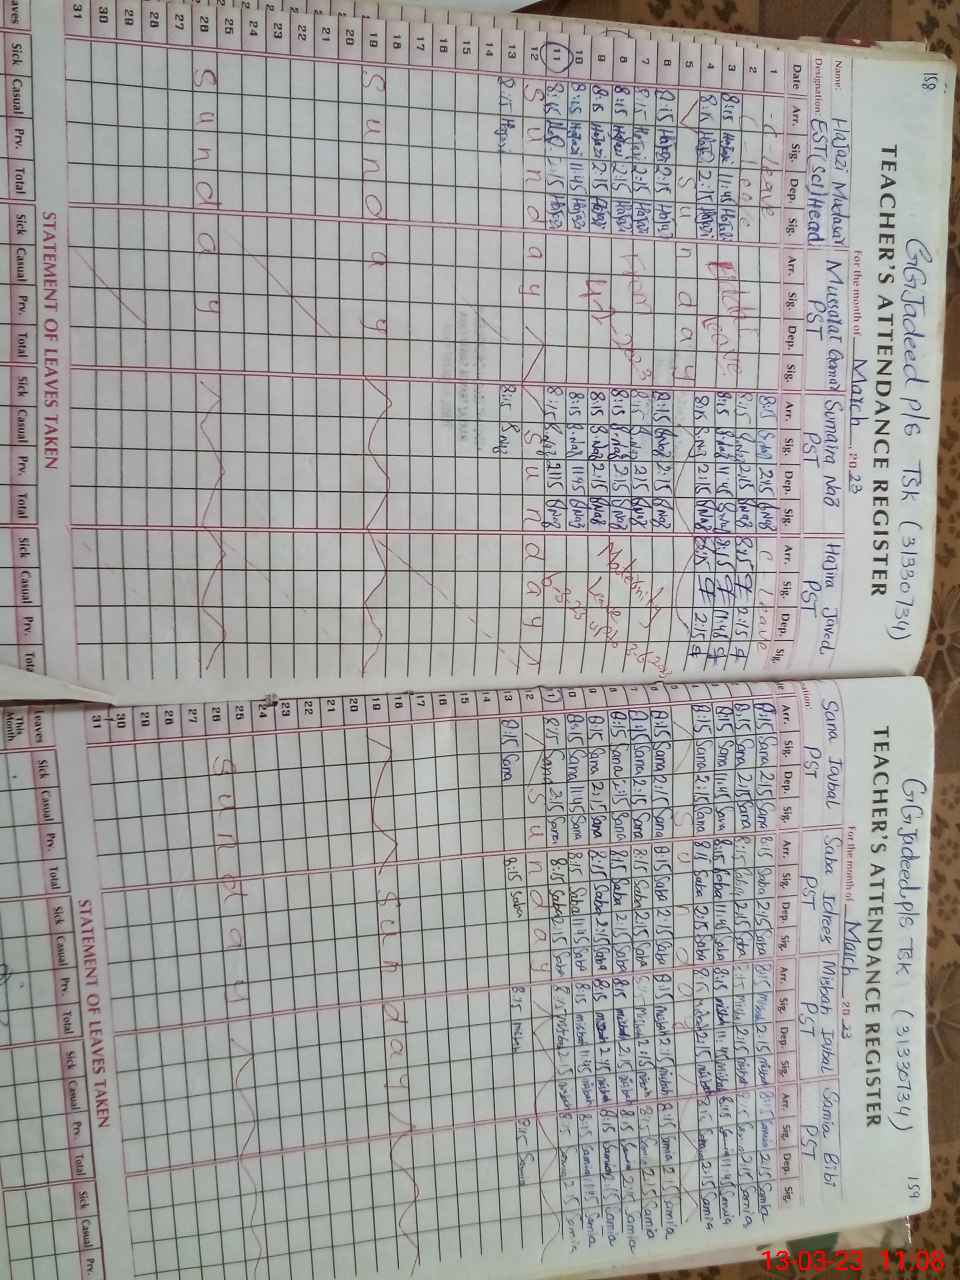 158
GGJadeed p/s TSK (31330734)
TEACHER'S ATTENDANCE REGISTER
For the month of March 2023
Name: Hajazi Mussarat Qamar Sumaira Naz Hajira Javed
Designation: EST (Sci) Head PST PST PST
Date Arr. Sig. Dep. Sig. Arr. Sig. Dep. Sig. Arr. Sig. Dep. Sig. Arr. Sig. Dep. Sig.
1 C-leave 8:15 S.Naz 2:15 S.Naz C-Leave
2 8:15 S.Naz 2:15 S.Naz 8:15 2:15
3 8:15 Hajazi 11:45 Hajazi 8:15 S.Naz 11:45 S.Naz 8:15 11:45
4 8:15 Hajazi 2:15 Hajazi Leave 8:15 S.Naz 2:15 S.Naz 8:15 2:15
5 Sunday
6 8:15 Hajazi 2:15 Hajazi 8:15 S.Naz 2:15 S.Naz
7 8:15 Hajazi 2:15 Hajazi From 8:15 S.Naz 2:15 S.Naz Maternity
8 8:15 Hajazi 2:15 Hajazi 8:15 S.Naz 2:15 S.Naz Leave upto
9 8:15 Hajazi 2:15 Hajazi 8:15 S.Naz 2:15 S.Naz
10 8:15 Hajazi 11:45 Hajazi 8:15 S.Naz 11:45 S.Naz
11 8:15 Hajazi 2:15 Hajazi 8:15 S.Naz 2:15 S.Naz 6-3-23
12 Sunday Sunday
13 8:15 Hajazi 8:15 S.Naz
14
15
16
17
18
19 Sunday
20
21
22
23
24
25
26 Sunday
27
28
29
30
31
STATEMENT OF LEAVES TAKEN
Leaves Sick Casual Prv. Total Sick Casual Prv. Total Sick Casual Prv. Total Sick Casual Prv. Total
159
GGJadeed p/s TSK (31330734)
TEACHER'S ATTENDANCE REGISTER
For the month of March 2023
Sana Iqbal Saba Idrees Misbah Iqbal Samia Bibi
PST PST PST PST
Arr. Sig. Dep. Sig. Arr. Sig. Dep. Sig. Arr. Sig. Dep. Sig. Arr. Sig. Dep. Sig.
8:15 Sana 2:15 Sana 8:15 Saba 2:15 Saba 8:15 Misbah 2:15 Misbah 8:15 Samia 2:15 Samia
8:15 Sana 2:15 Sana 8:15 Saba 2:15 Saba 8:15 Misbah 2:15 Misbah 8:15 Samia 2:15 Samia
8:15 Sana 11:45 Sana 8:15 Saba 11:45 Saba 8:15 Misbah 11:45 Misbah 8:15 Samia 11:45 Samia
4 8:15 Sana 2:15 Sana 8:15 Saba 2:15 Saba 8:15 Misbah 2:15 Misbah 8:15 Samia 2:15 Samia
5 Sunday
6 8:15 Sana 2:15 Sana 8:15 Saba 2:15 Saba 8:15 Misbah 2:15 Misbah 8:15 Samia 2:15 Samia
7 8:15 Sana 2:15 Sana 8:15 Saba 2:15 Saba 8:15 Misbah 2:15 Misbah 8:15 Samia 2:15 Samia
8 8:15 Sana 2:15 Sana 8:15 Saba 2:15 Saba 8:15 Misbah 2:15 Misbah 8:15 Samia 2:15 Samia
9 8:15 Sana 2:15 Sana 8:15 Saba 2:15 Saba 8:15 Misbah 2:15 Misbah 8:15 Samia 2:15 Samia
10 8:15 Sana 11:45 Sana 8:15 Saba 11:45 Saba 8:15 Misbah 11:45 Misbah 8:15 Samia 11:45 Samia
11 8:15 Sana 2:15 Sana 8:15 Saba 2:15 Saba 8:15 Misbah 2:15 Misbah 8:15 Samia 2:15 Samia
12 Sunday
13 8:15 Sana 8:15 Saba 8:15 Misbah 8:15 Samia
14
15
16
17
18
19 Sunday
20
21
22
23
24
25
26 Sunday
27
28
29
30
31
STATEMENT OF LEAVES TAKEN
Leaves Sick Casual Prv. Total Sick Casual Prv. Total Sick Casual Prv. Total Sick Casual Prv.
This Month
13-03-23 11:08